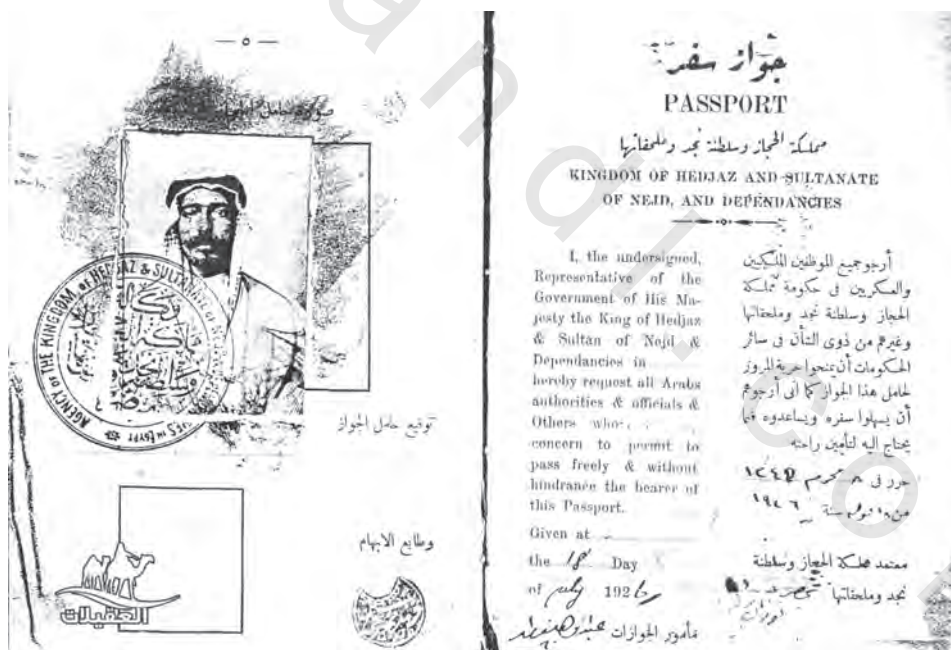 — ٥ —
صورة حامل الجواز
AGENCY OF THE KINGDOM OF HEDJAZ & SULTANATE OF NEJD
IN EGYPT
توقيع حامل الجواز
وطابع الابهام
العقيلات
جواز سفر
PASSPORT
مملكة الحجاز وسلطنة نجد وملحقاتها
KINGDOM OF HEDJAZ AND SULTANATE
OF NEJD, AND DEPENDANCIES
I, the undersigned,
Representative of the
Government of His Ma-
jesty the King of Hedjaz
& Sultan of Nejd &
Dependancies in
hereby request all Arabs
authorities & officials &
Others whom
concern to permit to
pass freely & without
hindrance the bearer of
this Passport.
Given at
the 18 Day
of July 1926
أرجو جميع الموظفين الملكيين
والعسكريين في حكومة مملكة
الحجاز وسلطنة نجد وملحقاتها
وغيرهم من ذوى الشأن فى سائر
الحكومات أن يمنحوا حرية المرور
لحامل هذا الجواز كما أنى أرجوهم
أن يسهلوا سفره ويساعدوه فيما
يحتاج اليه لتأمين راحته
حرر فى محرم
سنة ١٩٢٦
معتمد مملكة الحجاز وسلطنة
نجد وملحقاتها
مأمور الجوازات